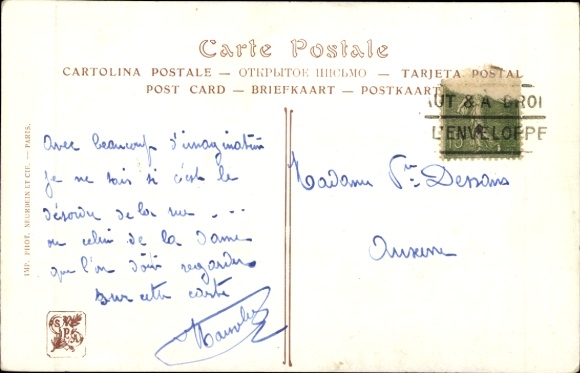 Carte Postale
CARTOLINA POSTALE — ОТКРЫТОЕ ПИСЬМО — TARJETA POSTAL
POST CARD — BRIEFKAART — POSTKAART
UT & A DROI
L'ENVELOPPE
15
avec beaucoup d'imagination
je ne sais si c'est le
désordre de la rue ...
ou celui de la dame
que l'on doit regarder
sur cette carte
Madame Dessons
Auxerre
IMP. PHOT. NEURDEIN ET CIE. — PARIS.
S. P. A.